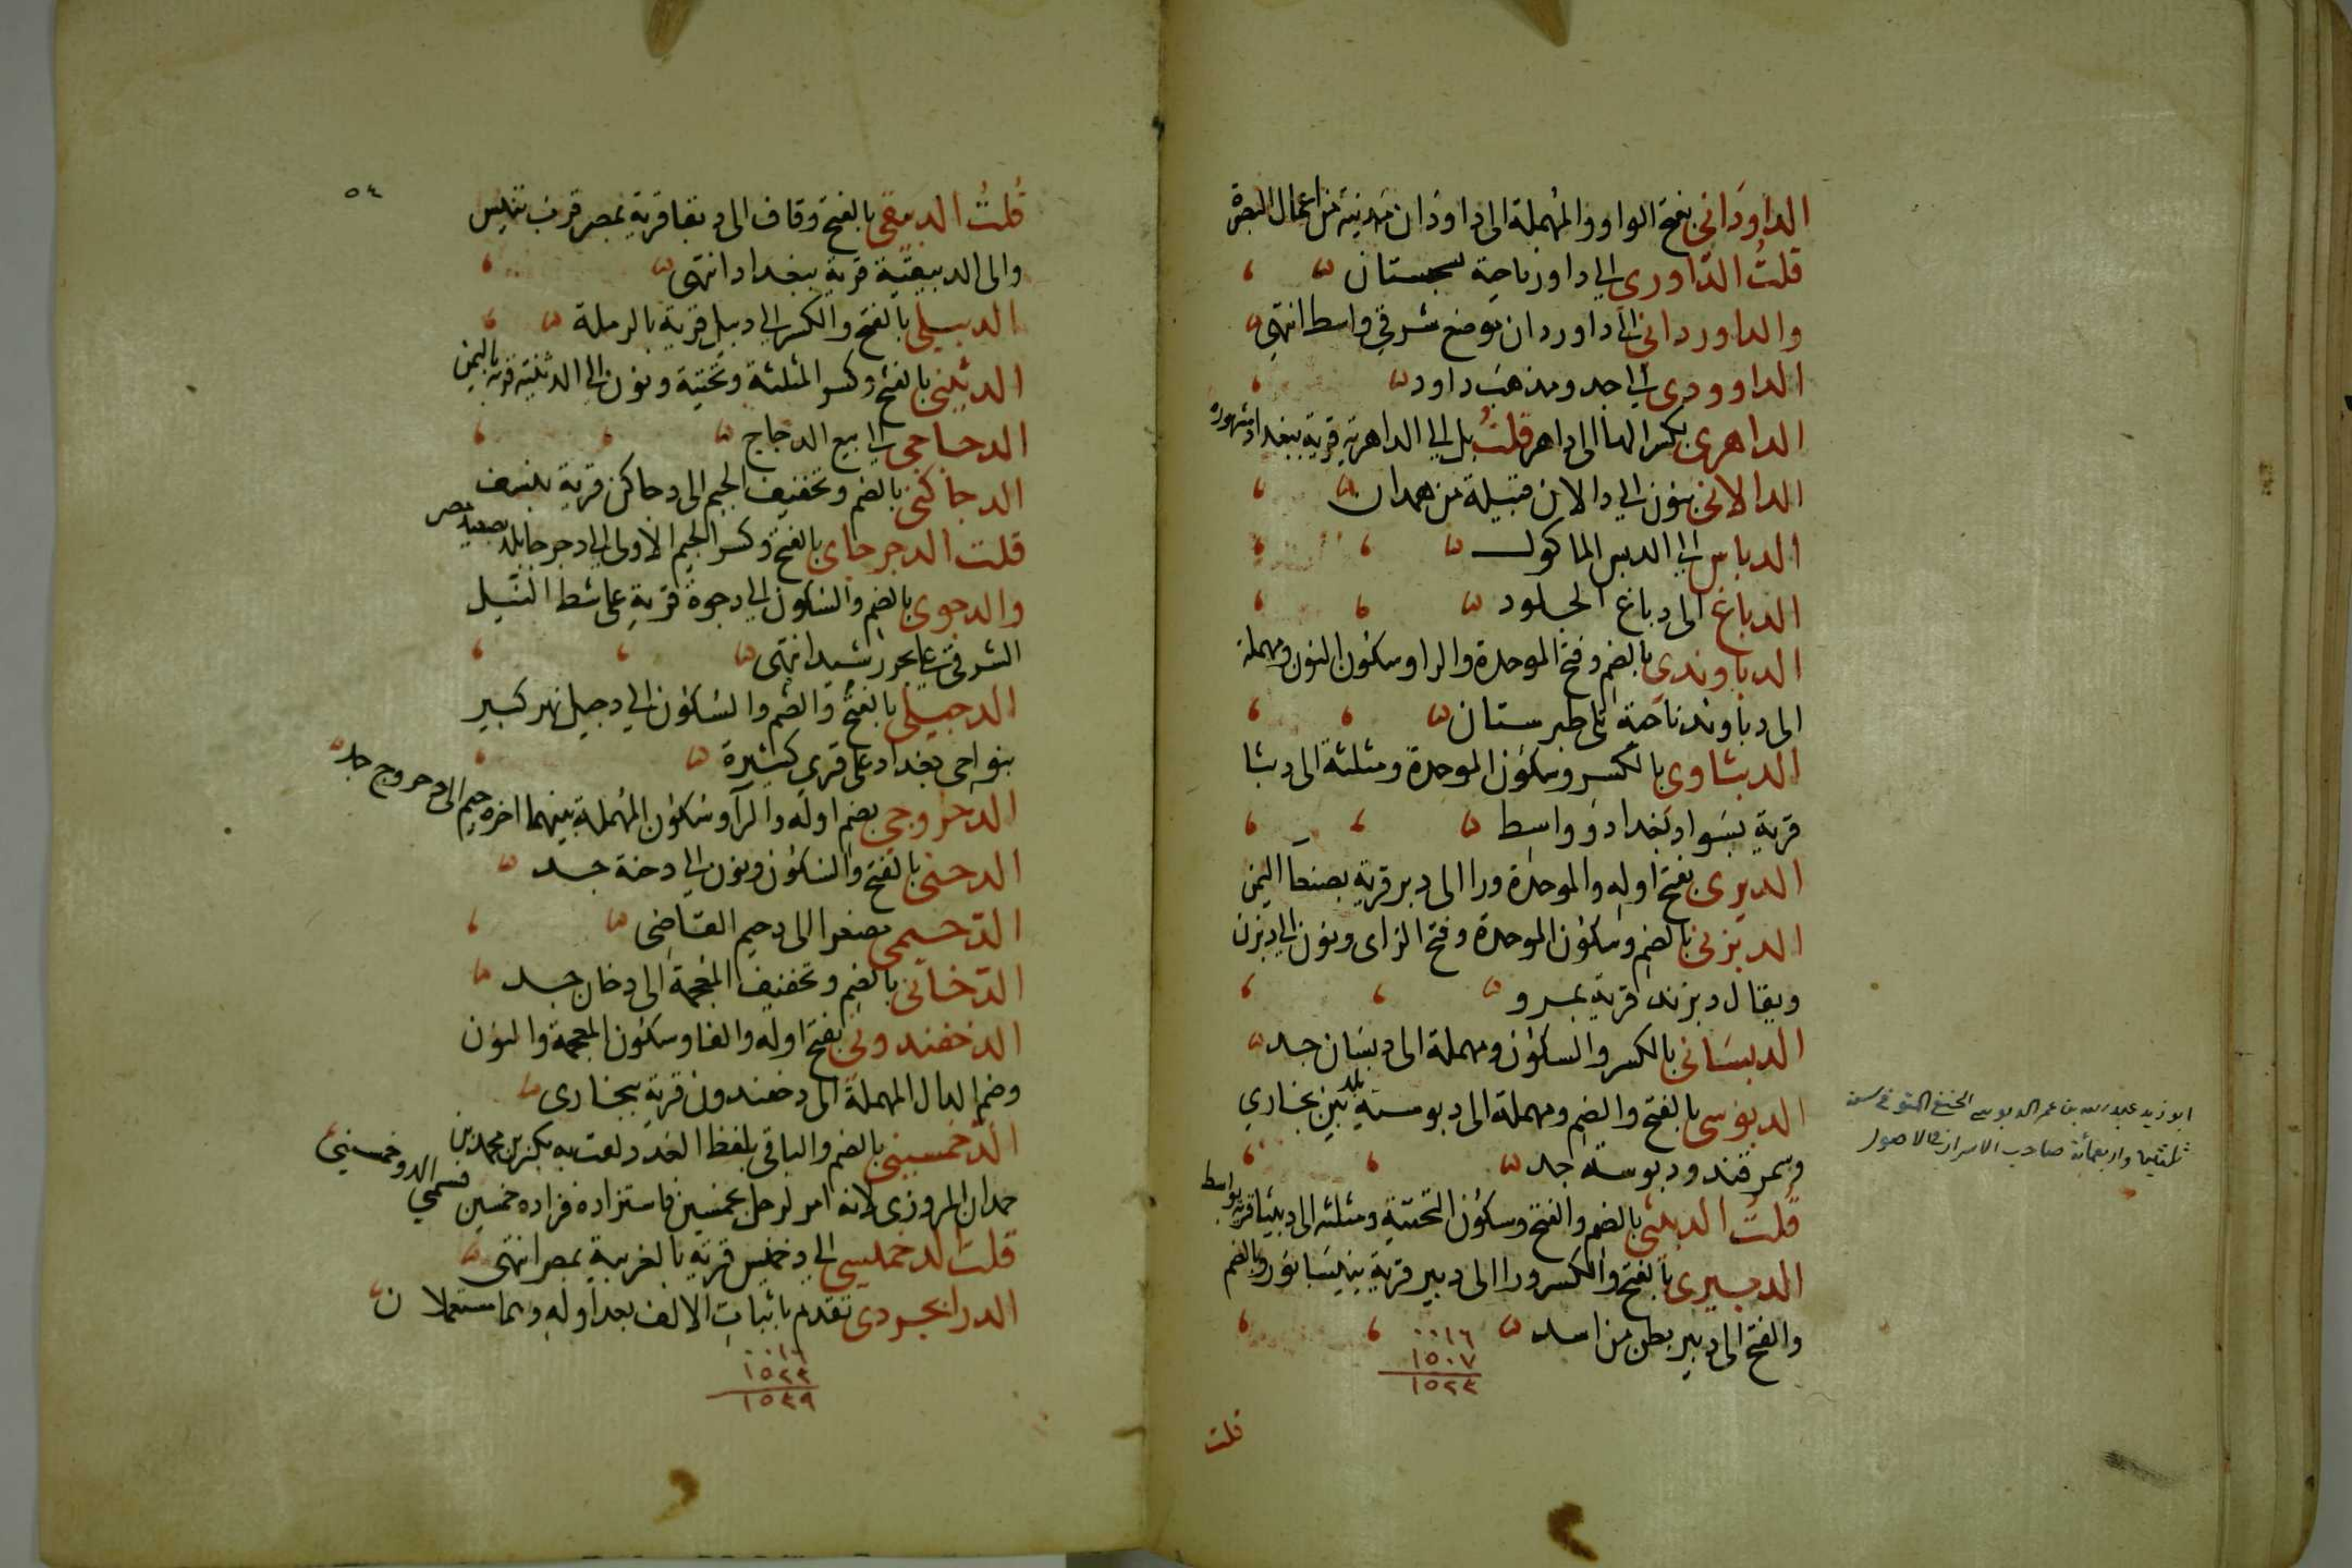 الداوداني بفتح الواو والمهملة الى داودان مدينة من اعمال البصرة
قلت الداوري الى داور ناحية سجستان
والداورداني الى داوردان موضع شرقي واسط انتهى
الداوودي الى جد ومذهب داود
الداهري بكسر الها الى داهر قلت بل الى الداهرية قرية ببغداد مشهورة
الدالاني بنون الى دالان قبيلة من همدان
الدباس الى الدبس الماكول
الدباغ الى دباغ الجلود
الدباوندي بالضم وفتح الموحدة والواو وسكون النون ومهملة
الى دباوند ناحية تلي طبرستان
الدبثاوي بالكسر وسكون الموحدة ومثلثة الى دبثا
قرية بسواد بغداد وواسط
الدبري بفتح اوله والموحدة ورا الى دبر قرية بصنعآ اليمن
الدبزني بالضم وسكون الموحدة وفتح الزاى ونون الى دبزن
ويقال دبزند قرية بمرو
الدبساني بالكسر والسكون ومهملة الى دبسان جد
الدبوسي بالفتح والضم ومهملة الى دبوسية بلد بين بخاري
وسمرقند ودبوسة جد
ابو زيد عبد الله بن عمر الدبوسي الحنفي المتوفى سنة
ثلثين واربعمائة صاحب الاسرار والاصول
قلت الدبيثي بالضم والفتح وسكون التحتية ومثلثه الى دبيثا قرية بواسط
الدبيري بالفتح والكسر ورا الى دبير قرية بنيسابور وبالضم
والفتح الى دبير بطن من اسد
٠٠١٦
١٥٠٧
١٥٢٣
قلت
٥٤
قلت الدبيقي بالفتح وقاف الى دبيقا قرية بمصر قرب تنيس
والى الدبيقية قرية ببغداد انتهى
الدبيلي بالفتح والكسر الى دبيل قرية بالرملة
الدثيني بالفتح وكسر المثلثة وتحتية ونون الى الدثينة قرية باليمن
الدجاجي الى بيع الدجاج
الدجاكني بالضم وتخفيف الجيم الى دجاكن قرية بنسف
قلت الدجرجاي بالفتح وكسر الجيم الاولى الى دجرجا بلد بصعيد مصر
والدجوي بالضم والسكون الى دجوة قرية على شط النيل
الشرقي على بحر رشيد انتهى
الدجيلي بالفتح والضم والسكون الى دجيل نهر كبير
بنواحى بغداد على قرى كثيرة
الدحروجي بضم اوله والرآ وسكون المهملة بينهما اخره جيم الى دحروج جد
الدحني بالفتح والسكون ونون الى دحنة جد
الدحيمي مصغرا الى دحيم القاضى
الدخاني بالضم وتخفيف المعجمة الى دخان جد
الدخفندوني بفتح اوله والفا وسكون المعجمة والنون
وضم الدال المهملة الى دخفندون قرية ببخارى
الدخمسيني بالضم والباقي بلفظ العدد لقب به بكر بن محمد بن
حمدان المروزى لانه امر لرجل بخمسين فاستزاده فزاده خمسين فسمي الدوخمسيني
قلت الدخميسي الى دخميس قرية بالغربية بمصر انتهى
الدرابجردي تقدم باثبات الالف بعد اوله وهما مستعملان
٠٠١٦
١٥٢٣
١٥٣٩